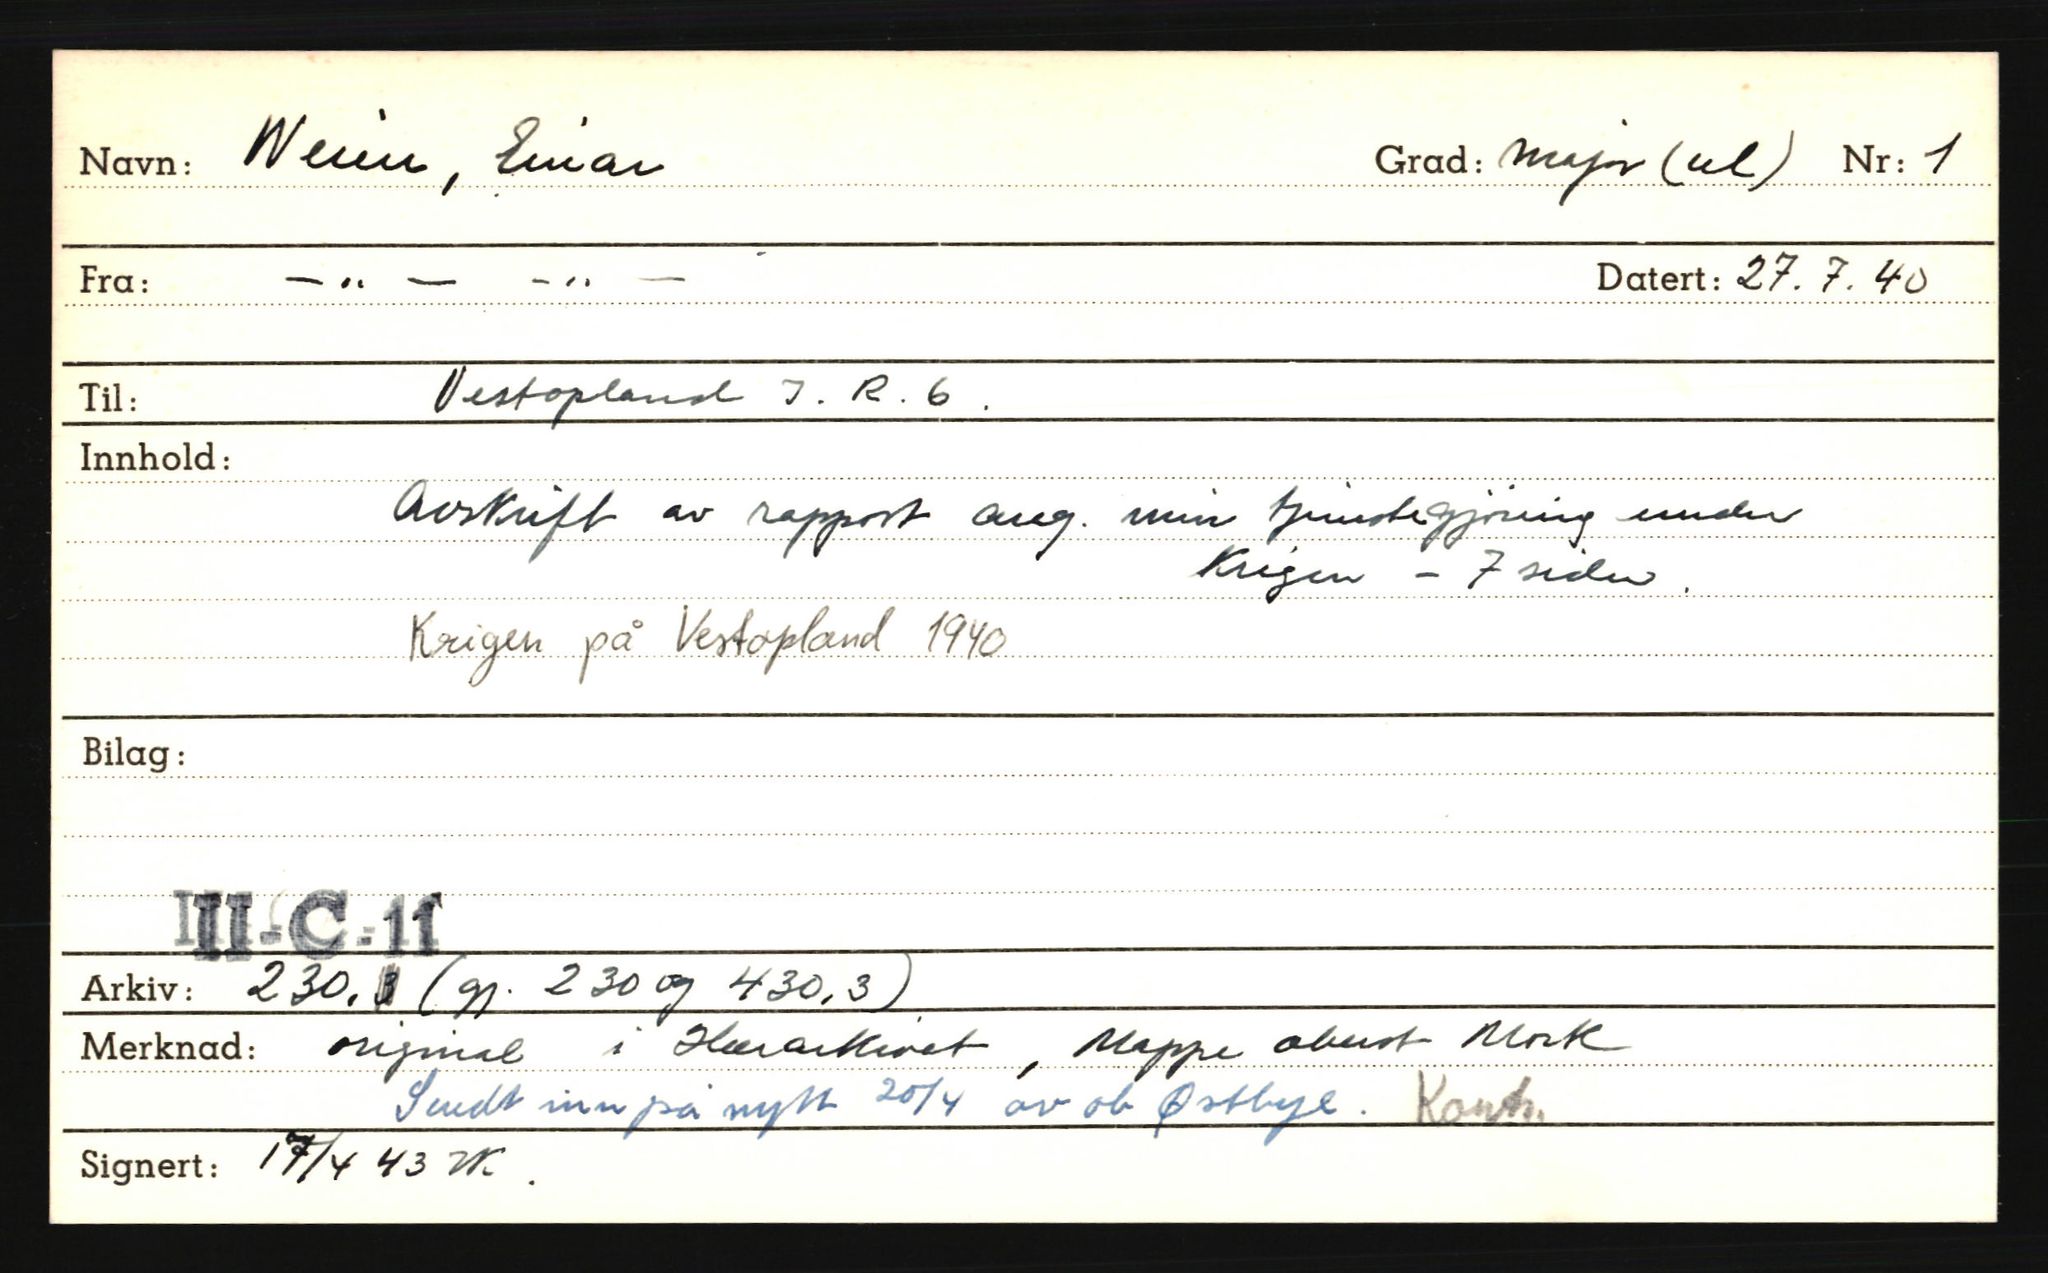 Navn: Weien, Einar Grad: Major (ul) Nr: 1
Fra: — " — — " — Datert: 27. 7. 40
Til: Vestopland I. R. 6.
Innhold:
Avskrift av rapport ang. min tjenestegjöring under
Krigen – 7 sider.
Krigen på Vestopland 1940
Bilag:
III-C-11
Arkiv: 230.3 (gj. 230 og 430.3)
Merknad: original i Hærarkivet, Mappe oberst Mork
Sendt inn på nytt 20/4 av ob Østbye. Kontr.
Signert: 17/4 43